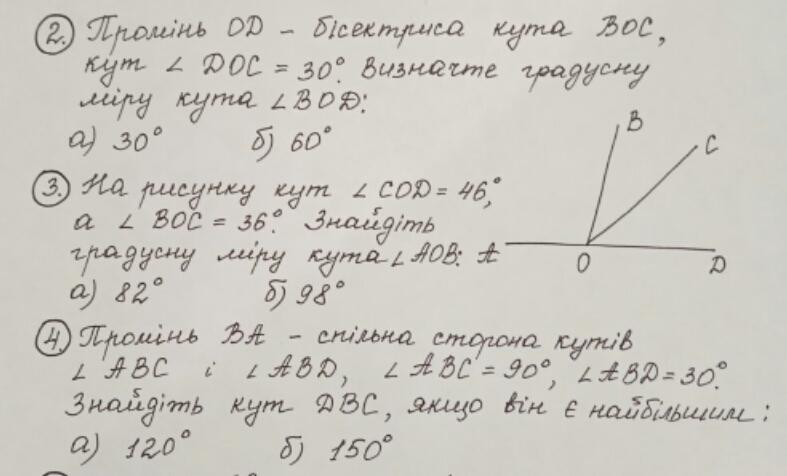 2. Промінь OD - бісектриса кута BOC,
кут ∠ DOC = 30°. Визначте градусну
міру кута ∠BOD:
а) 30° б) 60°
3. На рисунку кут ∠ COD = 46°,
а ∠ BOC = 36°. Знайдіть
градусну міру кута ∠AOB:
а) 82° б) 98°
B
C
A
O
D
4. Промінь BA - спільна сторона кутів
∠ ABC і ∠ABD, ∠ ABC = 90°, ∠ABD = 30°.
Знайдіть кут DBC, якщо він є найбільшим:
а) 120° б) 150°